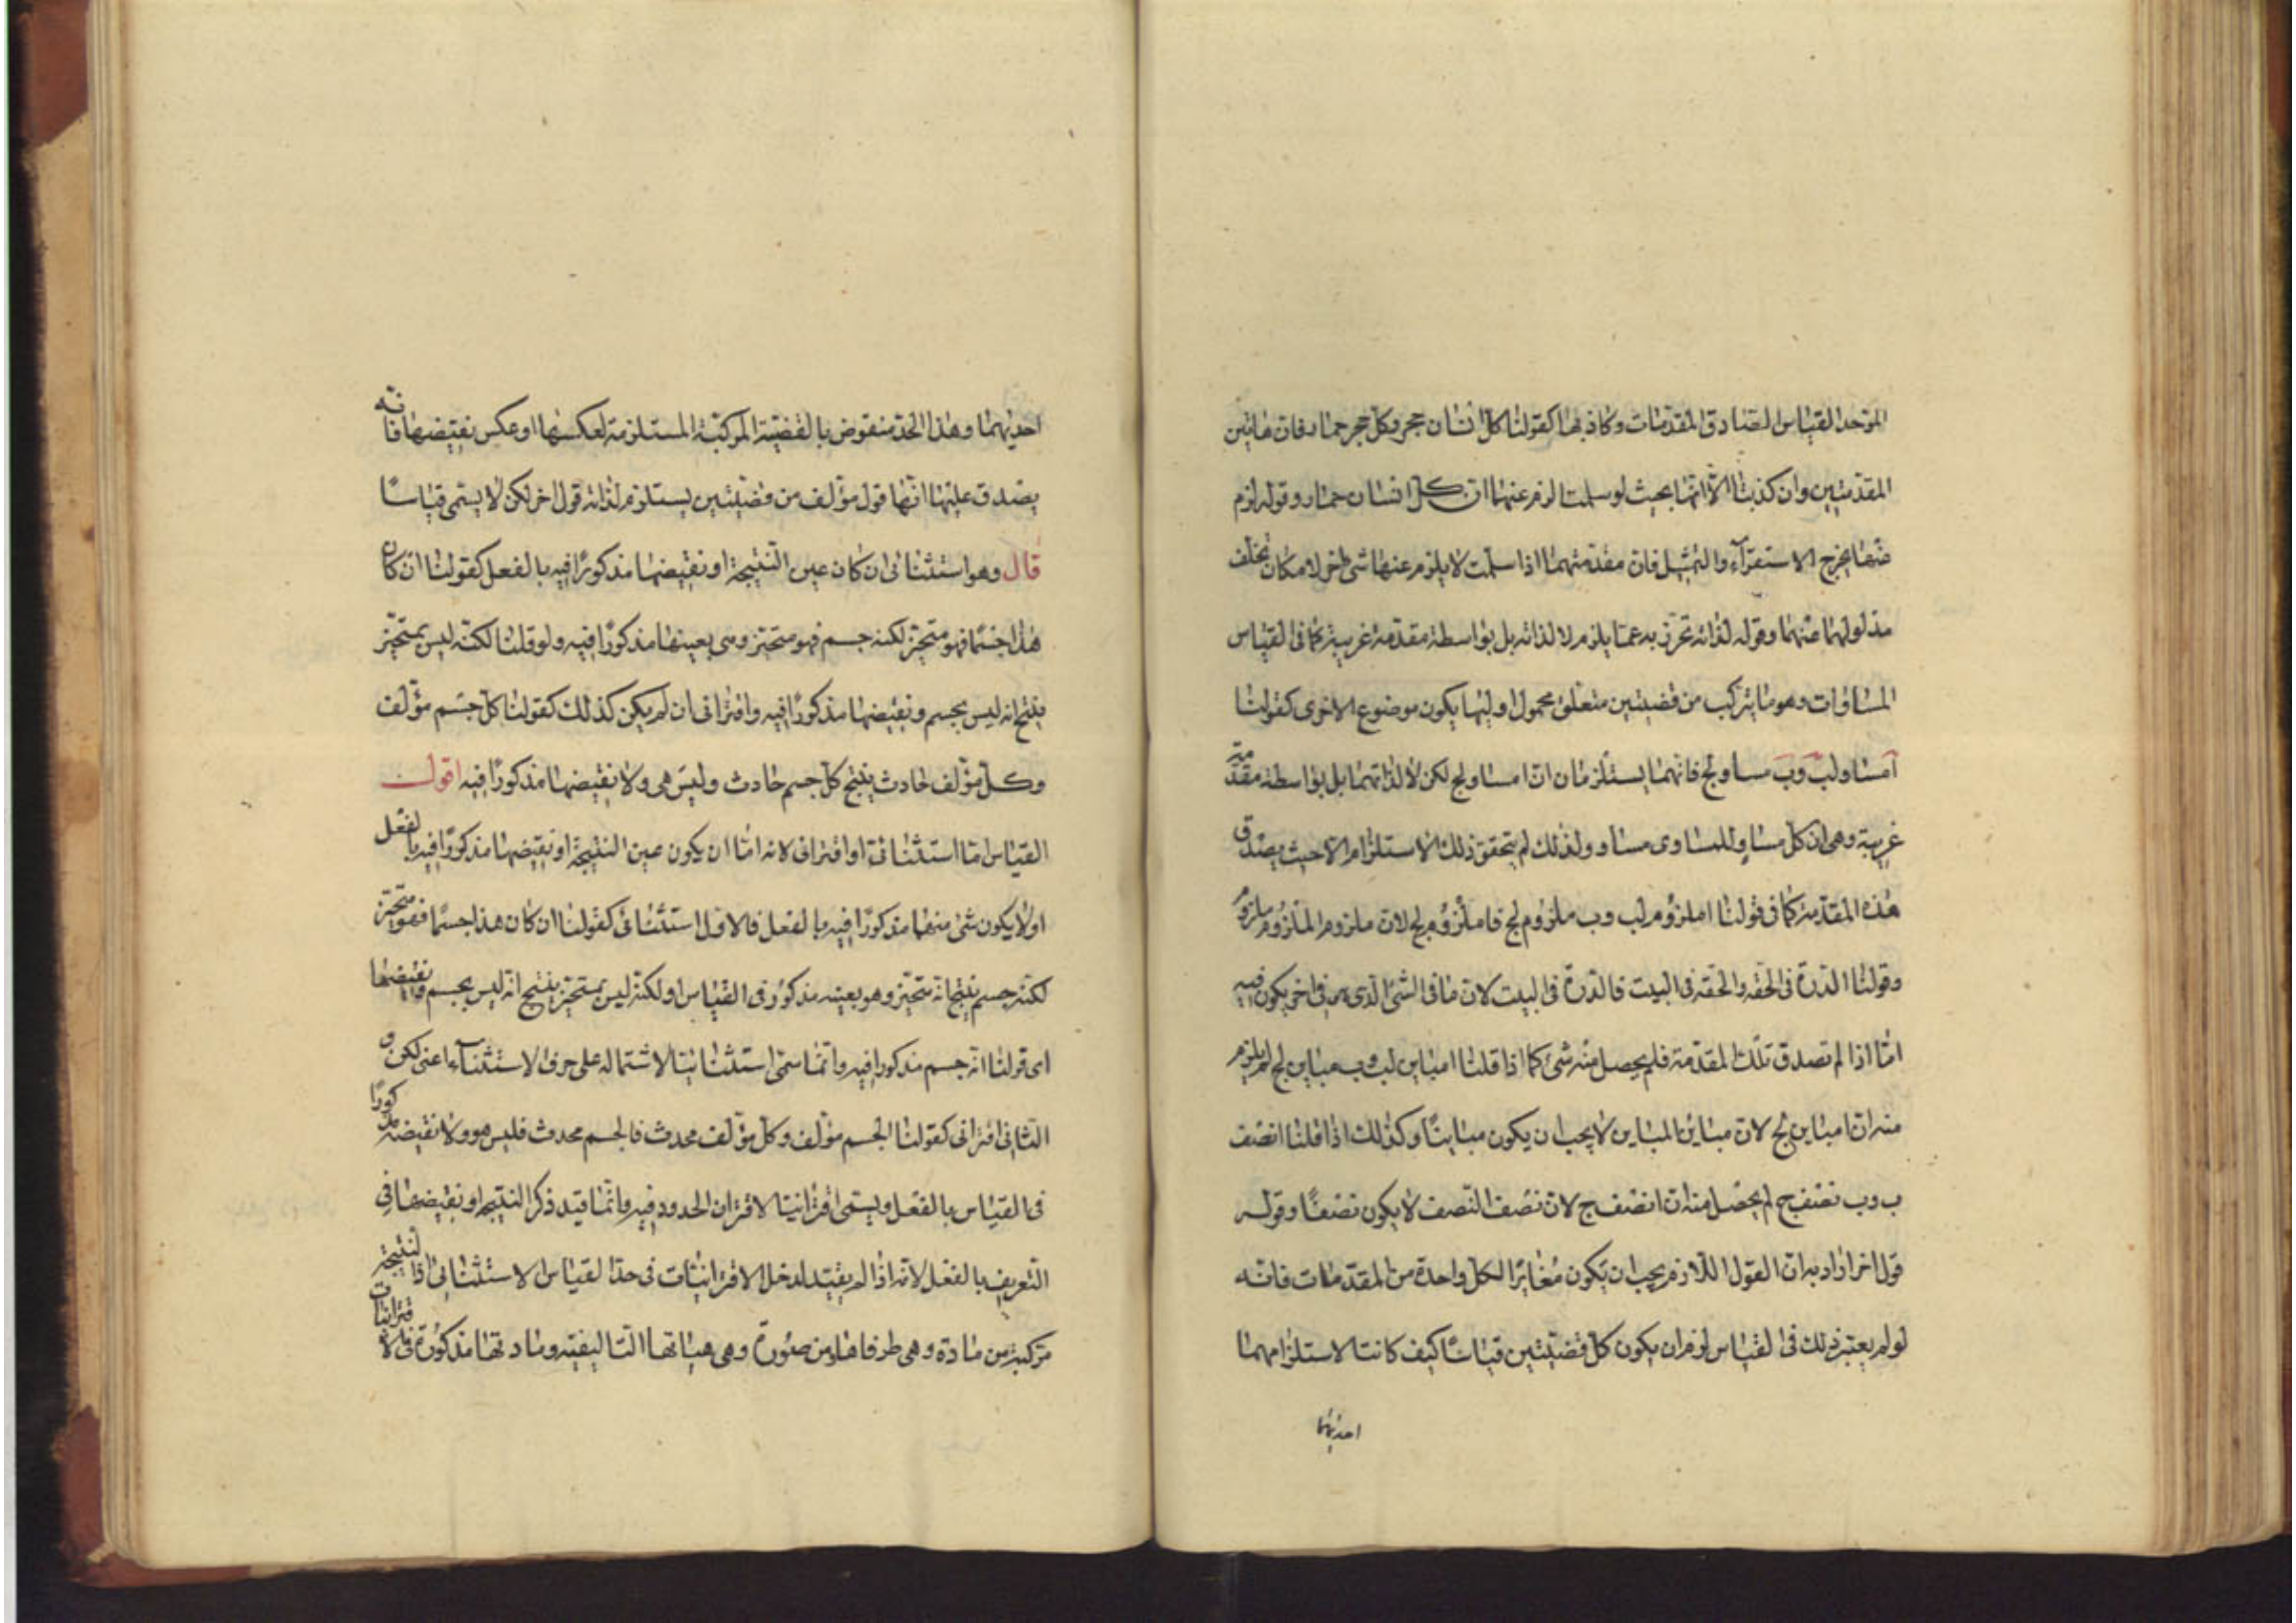 الموحد القیاس الصادق المقدمات وکاذبها کقولنا کل انسان حجر وکل حجر حمار فان هاتین
المقدمتین وان کذبتا الا انهما بحیث لو سلمتا لزم عنهما ان کل انسان حمار وقوله لزم
عنها یخرج الاستقرآء والتمثیل فان مقدمتهما اذا سلمت لا یلزم عنها شی اخر لامکان تخلف
مدلولهما عنهما وقوله لذاته تحرز به عما یلزم لا لذاته بل بواسطة مقدمة غریبة کما فی القیاس
المساوات وهو ما یترکب من قضیتین متعلق محمول اولیهما یکون موضوع الاخری کقولنا
آ مساو لب وب مساو لج فانهما یستلزمان ان ا مساو لج لکن لا لذاتهما بل بواسطة مقدمة
غریبة وهی ان کل مساو للمساوی مساو ولذلک لم یتحقق ذلک الاستلزام الا حیث یصدق
هذه المقدمة کما فی قولنا ا ملزوم لب وب ملزوم لج فا ملزوم لج لان ملزوم الملزوم ملزوم
وقولنا الدرة فی الحقه والحقه فی البیت فالدرة فی البیت لان ما فی الشیء الذی هو فی اخر یکون فیه
اما اذا لم تصدق تلک المقدمة فلم یحصل منه شیء کما اذا قلنا ا مباین لب وب مباین لج لم یلزم
منه ان ا مباین لج لان مباین المباین لا یجب ان یکون مباینا وکذلک اذا قلنا ا نصف
ب وب نصف ج لم یحصل منه ان ا نصف ج لان نصف النصف لا یکون نصفا وقوله
قول اخر اراد به ان القول اللازم یجب ان یکون مغایرا لکل واحدة من المقدمات فانه
لو لم یعتبر ذلک فی القیاس لزم ان یکون کل قضیتین قیاسا کیف کانتا لاستلزامهما
احدیهما
احدیهما وهذا الحد منقوض بالقضیة المرکبة المستلزمة لعکسها او عکس نقیضها فانه
یصدق علیها انها قول مؤلف من قضیتین یستلزم لذاته قول اخر لکن لا یسمی قیاسا
قال وهو استثنائی ان کان عین النتیجة او نقیضها مذکورا فیه بالفعل کقولنا ان کان
هذا جسما فهو متحیز لکنه جسم فهو متحیز وهی بعینها مذکورا فیه ولو قلنا لکنه لیس بمتحیز
ینتج انه لیس بجسم ونقیضها مذکورا فیه واقترانی ان لم یکن کذلک کقولنا کل جسم مؤلف
وکل مؤلف حادث ینتج کل جسم حادث ولیس هی ولا نقیضها مذکورا فیه اقول
القیاس اما استثنائی او اقترانی لانه اما ان یکون عین النتیجة او نقیضها مذکورا فیه بالفعل
او لا یکون شیء منهما مذکورا فیه بالفعل فالاول استثنائی کقولنا ان کان هذا جسما فهو متحیز
لکنه جسم ینتج انه متحیز وهو بعینه مذکور فی القیاس او لکنه لیس بمتحیز ینتج انه لیس بجسم ونقیضها
ای قولنا انه جسم مذکورا فیه وانما سمی استثنائیا لاشتماله علی حرف الاستثنآء اعنی لکن و
الثانی اقترانی کقولنا الجسم مؤلف وکل مؤلف محدث فالجسم محدث فلیس هو ولا نقیضه مذکورا
فی القیاس بالفعل ویسمی اقترانیا لاقتران الحدود فیه وانما قید ذکر النتیجة او نقیضها فی
التعریف بالفعل لانه اذا لم یقید لدخل الاقترانیات فی حد القیاس الاستثنائی اذا النتیجة
مرکبة من مادة وهی طرفاها ومن صورة وهی هیاتها التالیفیه وما دتها مذکورة فی الاقترانیات